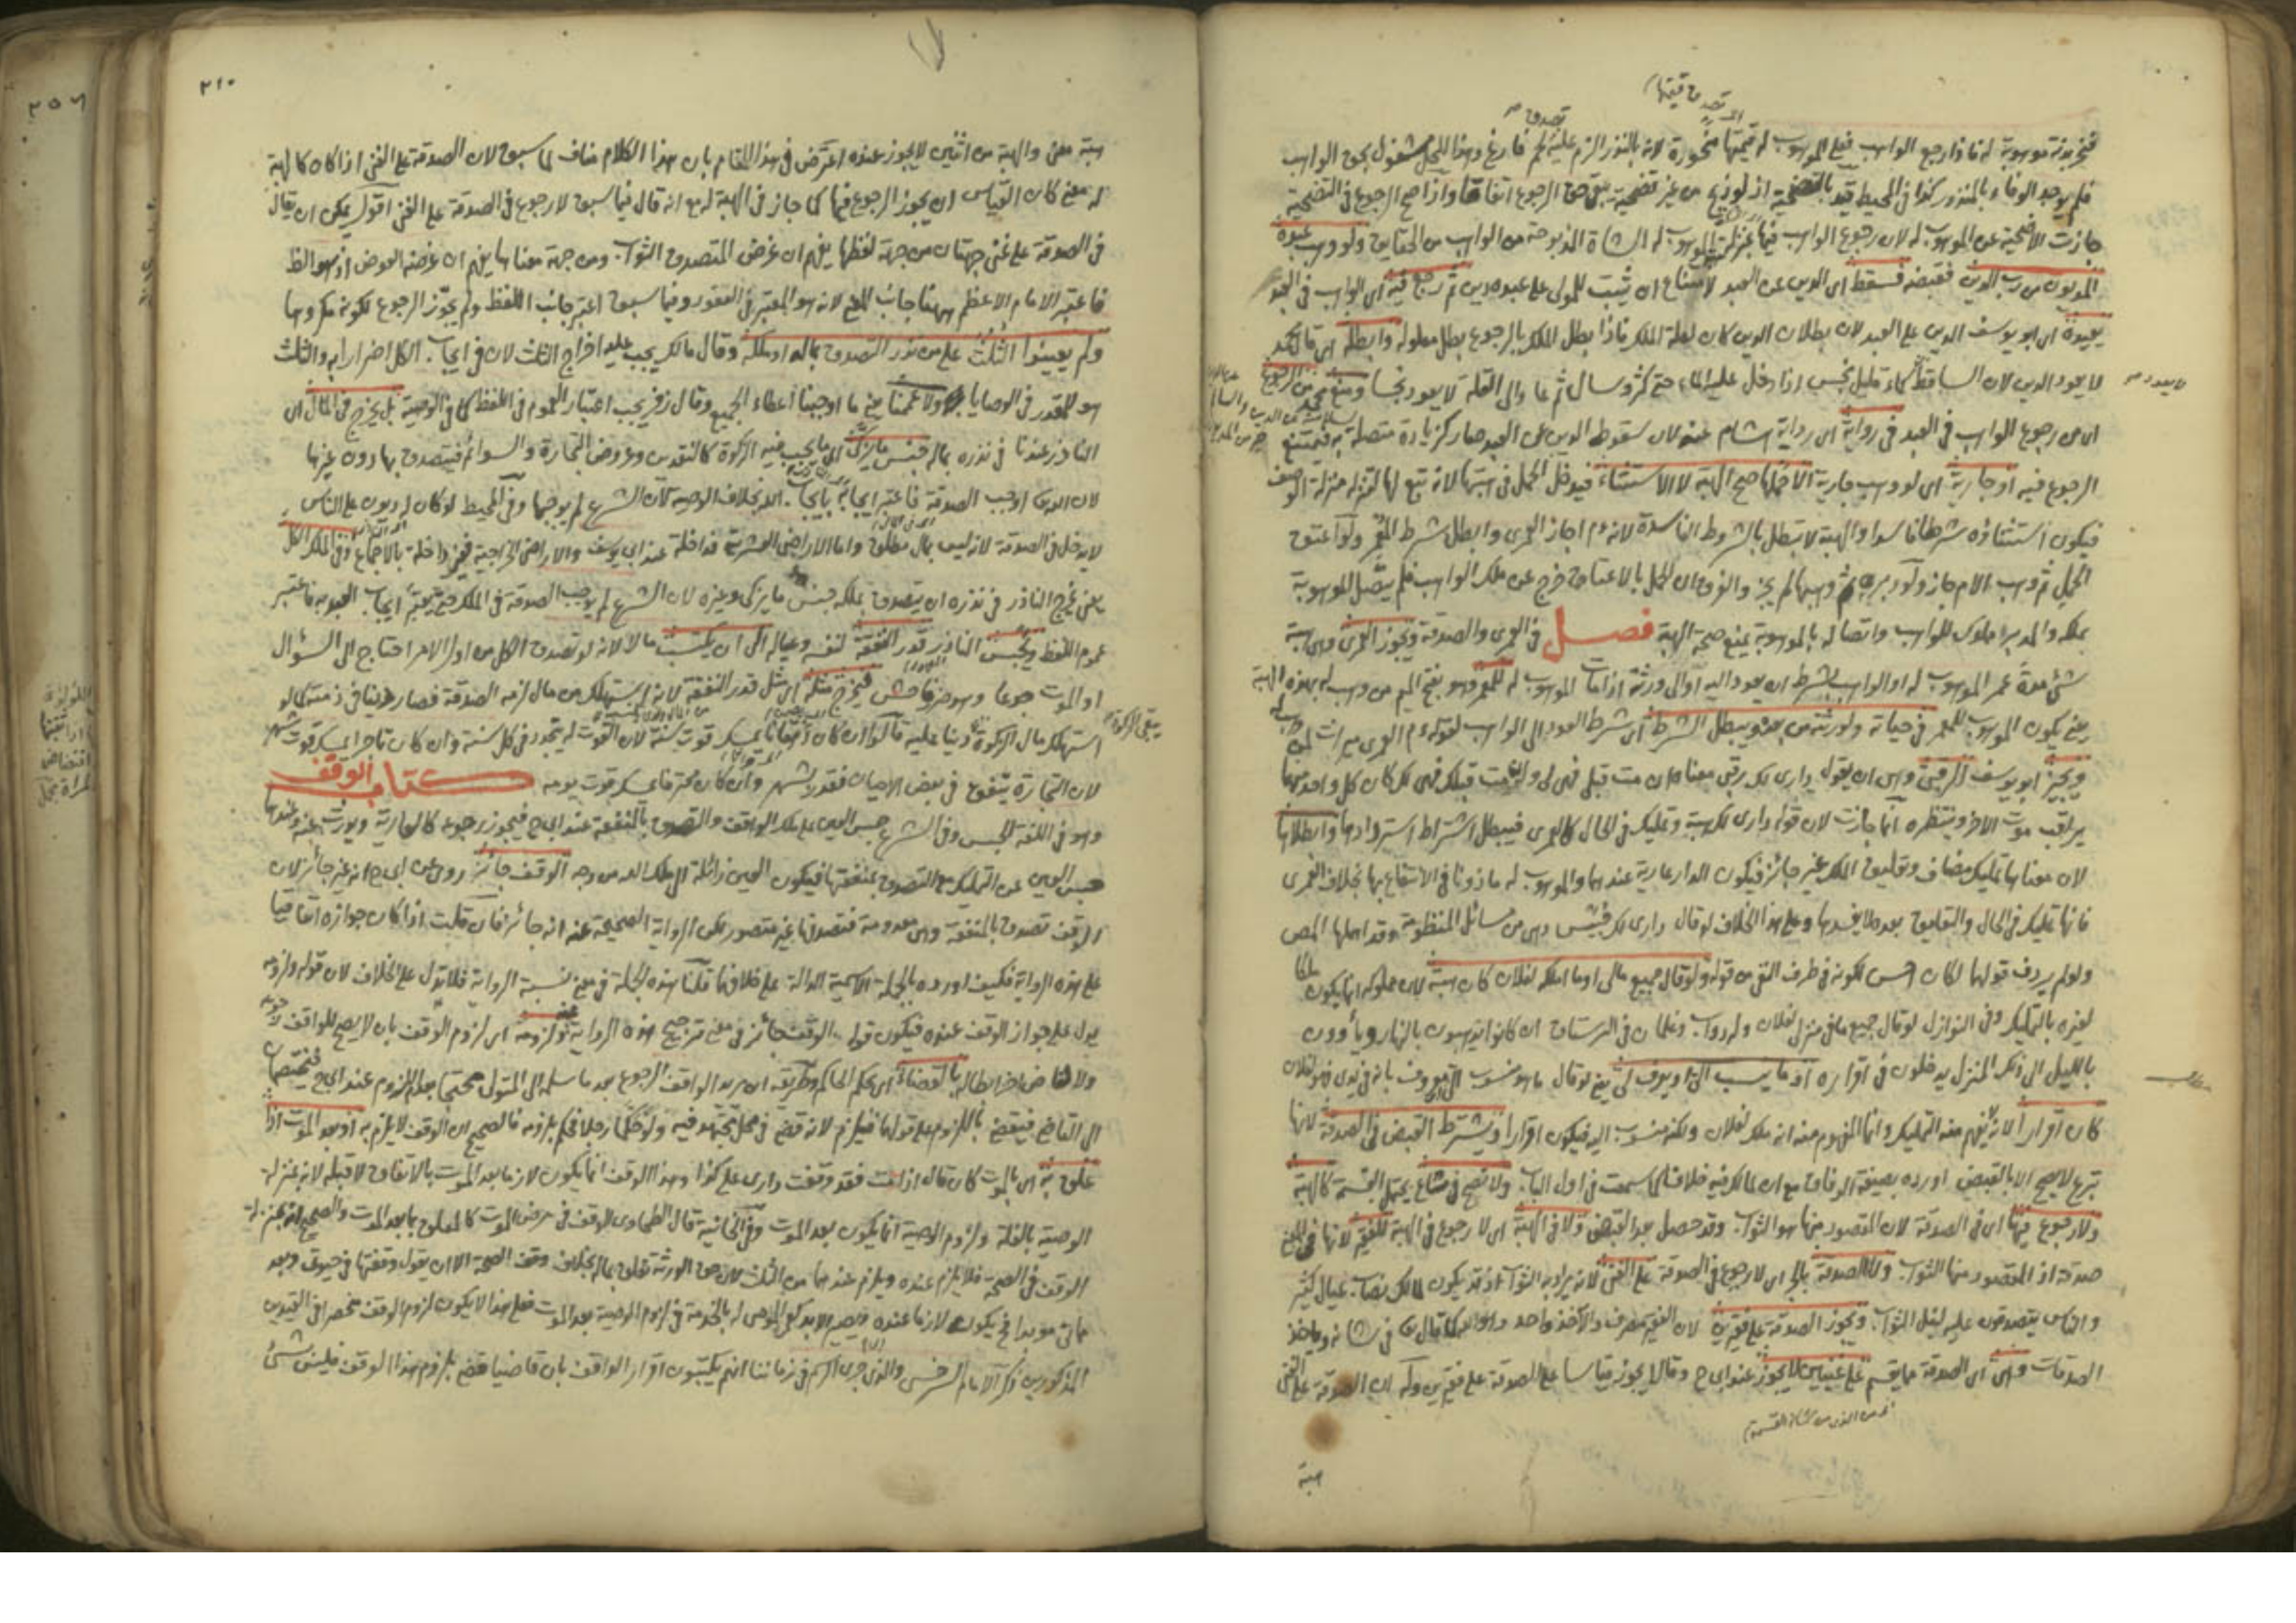 فنحر بدنة موهوبة له فاذا رجع الواهب فعلى الموهوب له قيمتها منحورة لانه بالنذر الزم عليه لحم فارغ وهذا اللحم مشغول بحق الواهب
فلم يوجد الوفاء بالمنذور كذا في المحيط قيد بالتضحية اذ لو ذبح من غير تضحية يبقى حق الرجوع اتفاقا واذا صح الرجوع في التضحية
جازت الاضحية عن الموهوب له لان رجوع الواهب فيها بمنزلة الموهوب له الشاة المذبوحة من الواهب من الحقايق ولو وهب عبده
المديون من رب الدين فقبضه فسقط اى الدين عن العبد لامتناع ان يثبت للمولى على عبده دين ثم رجع فيه اى الواهب في العبد
يعيده اى ابو يوسف الدين على العبد لان بطلان الدين كان لعلة الملك فاذا بطل الملك بالرجوع بطل معلوله وابطله اى قال محمد
لا يعود الدين لان الساقط كماء قليل نجس اذا دخل عليه الماء حتى كثر وسال ثم عاد الى القلة لا يعود نجسا ومنع محمد من الرجوع
اى من رجوع الواهب في العبد في رواية اى رواية هشام عنه لان سقوط الدين عن العبد صار كزيادة متصلة به فيمتنع
الرجوع فيه او جارية اى لو وهب جارية الا حملها صح الهبة لا الاستثناء فيدخل الحمل في هبتها لانه تبع لها لتنزله منزلة الوصف
فيكون استثناؤه شرطا فاسدا والهبة لا تبطل بالشروط الفاسدة لانه ءم اجاز العمرى وابطل شرط المعمر ولو اعتق
الحمل ثم وهب الام جاز ولو دبره ثم وهبها لم يجز والفرق ان الحمل بالاعتاق خرج عن ملك الواهب فلم يتصل الموهوبة
بملكه والمدبر مملوك للواهب واتصاله بالموهوبة يمنع صحة الهبة فصل في العمرى والصدقة وتجوز العمرى وهي هبة
شئ مدة عمر الموهوب له او الواهب بشرط ان يعود اليه او الى ورثته اذا مات الموهوب له للمعمر وهو بفتح الميم من وهب له بهذه الهبة
يعني يكون الموهوب للمعمر في حياته ولورثته من بعده ويبطل الشرط اى شرط العود الى الواهب لقوله ءم العمرى ميراث لمن وهب له
ويجيز ابو يوسف الرقبى وهي ان يقول دارى لك رقبى معناه ان مت قبلى فهي لى وان مت قبلك فهي لك كان كل واحد منهما
يراقب موت الاخر وينتظره انما جازت لان قوله دارى لك هبة وتمليك في الحال كالعمرى فيبطل اشتراط استردادها وابطلاها
لان معناها تمليك مضاف وتعليق الملك غير جائز فيكون الدار عارية عندهما والموهوب له ماذونا في الانتفاع بها بخلاف العمرى
فانها تمليك في الحال والتعليق بعده لا يفسدها وعلى هذا الخلاف لو قال دارى لك حبيس وهي من مسائل المنظومة وقد اهملها المص
ولو لم يردف قولها لكان احسن لكونه في طرف النفي من قوله ولو قال جميع مالى او ما املكه لفلان كان هبة لان مملوكه انما يكون ملكا
لغيره بالتمليك وفي النوازل لو قال جميع ما في منزلى لفلان وله دواب وغلمان في الرستاق ان كانوا يذهبون بالنهار ويأوون
بالليل الى ذلك المنزل يدخلون في اقراره او ما ينسب الى او يعرف لى يعني لو قال ما هو منسوب الى او معروف بانه في يدى فهو لفلان
كان اقرارا لانه لا يفهم منه التمليك وانما المفهوم منه انه ملك لفلان ولكنه منسوب اليه فيكون اقرارا ويشترط القبض في الصدقة لانها
تبرع لا يصح الا بالقبض اورده بصيغة الوفاق مع ان لمالك فيه خلافا كما سمعت في اول الباب ولا تصح في مشاع يحتمل القسمة كالهبة
ولا رجوع فيها اى في الصدقة لان المقصود منها هو الثواب وقد حصل بعد القبض ولا في الهبة اى لا رجوع في الهبة للفقير لانها في المعنى
صدقة اذ المقصود منها الثواب ولا الصدقة بالجر اى لا رجوع في الصدقة على الغنى لانه يراد به الثواب اذ قد يكون مالك نصاب عيال كثير
والناس يتصدقون عليه لنيل الثواب وتجوز الصدقة على فقيرين لان الفقير مصرف والآخذ واحد وهو الله كما قال الله في شانه وياخذ
الصدقات وهي اى الصدقة مما يقسم على غنيين لا يجوز عند ابى ح وقالا يجوز قياسا على الصدقة على فقيرين وله ان الصدقة على الغنى
هبة
٢١٠
هبة معنى والهبة من اثنين لا يجوز عنده اعترض في هذا المقام بان هذا الكلام مناف لما سبق لان الصدقة على الغنى اذا كان كالهبة
له معنى كان القياس ان يجوز الرجوع فيها كما جاز في الهبة له مع انه قال فيما سبق لا رجوع في الصدقة على الغنى اقول يمكن ان يقال
في الصدقة على غنى جهتان من جهة لفظها يفهم ان غرض المتصدق الثواب ومن جهة معناها يفهم ان غرضه العوض اذ هو الظ
فاعتبر الامام الاعظم ههنا جانب المعنى لانه هو المعتبر في العقود وفيما سبق اعتبر جانب اللفظ ولم يجوز الرجوع لكونه مكروها
ولم يعينوا الثلث على من نذر التصدق بماله او ملكه وقال مالك يجب عليه اخراج الثلث لان في ايجاب الكل اضرارا به والثلث
هو المقدر في الوصايا ولا عممنا يعني ما اوجبنا اعطاء الجميع وقال زفر يجب اعتبار العموم في اللفظ كما في الوصية بل يخرج في المال اى
الناذر عندنا في نذره بماله جنس ما يزكى اى ما يجب فيه الزكوة كالنقدين وعروض التجارة والسوائم فيتصدق بها دون غيرها
لان الله اوجب الصدقة فاعتبر ايجابه بايجاب الله بخلاف الوصية لان الشرع لم يوجبها وفي المحيط لو كان له ديون على الناس
لا يدخل في الصدقة لانه ليس بمال مطلق واما الاراضى العشرية فداخلة عند ابى يوسف والاراضى الخراجية غير داخلة بالاجماع وفي الملك الكل
يعني يخرج الناذر في نذره ان يتصدق بملكه جنس ما يزكى وغيره لان الشرع لم يوجب الصدقة في الملك حتى يعتبر ايجاب العبد به فاعتبر
عموم اللفظ ويحبس الناذر قدر النفقة لنفسه وعياله الى ان يكتسب مالا لانه لو تصدق الكل من اول الامر احتاج الى السؤال
او الموت جوعا وهو ضرر فاحش فيخرج مثله اى مثل قدر النفقة لانه استهلك من مال لزمه الصدقة فصار دينا في ذمته كما لو
استهلك مال الزكوة دينا عليه قالوا ان كان دهقانا يمسك قوت سنة لان القوت له يتجدد في كل سنة وان كان تاجرا يمسك قوت شهر
لان التجارة يتفق في بعض الاحيان فقدر بالشهر وان كان محترفا يمسك قوت يومه كتاب الوقف
وهو في اللغة الحبس وفي الشرع حبس العين على ملك الواقف والتصدق بالمنفعة عند ابى ح فيجوز رجوعه كالعارية ويورث عنه وعندهما
حبس العين عن التمليك مع التصدق بمنفعتها فيكون العين زائلة الى ملك الله من وجه الوقف جائز روى عن ابى ح انه غير جائز لان
الوقف تصدق بالمنفعة وهي معدومة فتصدقها غير متصور لكن الرواية الصحيحة عنه انه جائز فان قلت اذا كان جوازه اتفاقيا
على هذه الرواية فكيف اورده بالجملة الاسمية الدالة على خلافها قلنا هذه الجملة في معنى نسبة الرواية فلا تدل على الخلاف لان قوله ولزومه
يدل على جواز الوقف عنده فيكون قوله الوقف جائز في معنى ترجيح هذه الرواية ولزومه اى لزوم الوقف بان لا يصح للواقف رجوعه
ولا لقاض اخر ابطاله بالقضاء اى بحكم الحاكم وطريقه ان يريد الواقف الرجوع بعد ما سلمه الى المتولى محتجا بعدم اللزوم عند ابى ح فيختصمان
الى القاضى فيقضى باللزوم على قولهما فيلزم لانه قضى في محل مجتهد فيه ولو حكما رجلا فحكم بلزومه فالصحيح ان الوقف لا يلزم به او بعد الموت اذا
علق به اى بالموت كان قال اذا مت فقد وقفت دارى على كذا وهذا الوقف انما يكون لازما بعد الموت بالاتفاق لا قبله لانه بمنزلة
الوصية بالغلة ولزوم الوصية انما يكون بعد الموت وفي الخانية قال الطحاوى الوقف في مرض الموت كالمعلق بما بعد الموت والصحيح انه بمنزلة
الوقف في الصحة فلا يلزم عنده ويلزم عندهما من الثلث لان حق الورثة تعلق بماله بخلاف وقف الصحة الا ان يقول وقفتها في حيوتى وبعد
مماتى مؤبدا فح يكون لازما عنده ويصير الابد كعمر الموصى له بالخدمة في لزوم الوصية بعد الموت فعلى هذا لا يكون لزوم الوقف منحصرا في القيدين
المذكورين ذكر الامام السرخسى والذى جرى الرسم في زماننا انهم يكتبون اقرار الواقف بان قاضيا قضى بلزوم هذا الوقف فليس بشئ